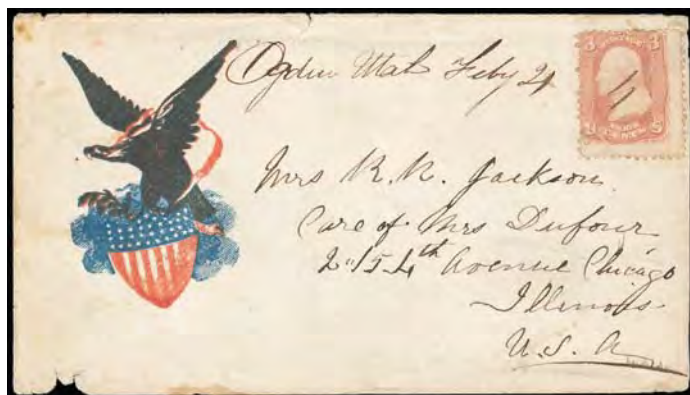 Ogden Utah Feby 21
3 3
U S
Mrs R. R. Jackson
Care of Mrs Dufour
4th Avenue Chicago
Illinois
U.S.A